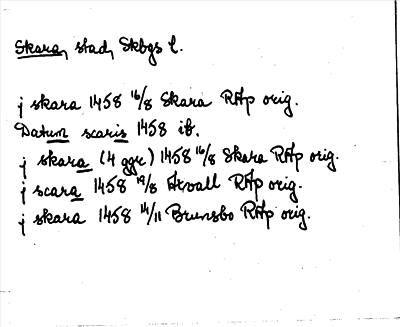 Skara, stad, Skbgs l.
j skara 1458 16/8 Skara RAp orig.
Datum scaris 1458 ib.
j skara (4 ggr) 1458 16/8 Skara RAp orig.
j scara 1458 19/8 Axvall RAp orig.
j skara 1458 14/11 Brunsbo RAp orig.